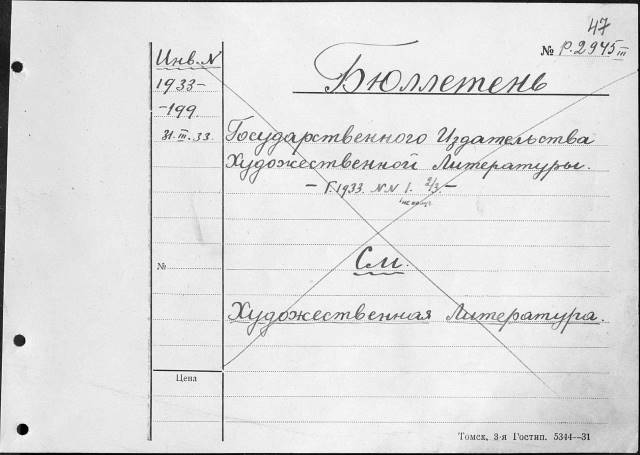 47
№ Р. 2945 III
Инв. N
1933—
-199.
31.III.33.
Бюллетень
Государственного Издательства
Художественной Литературы.
— Г. 1933. N N 1. 2/3 —
См.
№
Художественная Литература.
Цена
Томск, 3-я Гостип. 5344—31